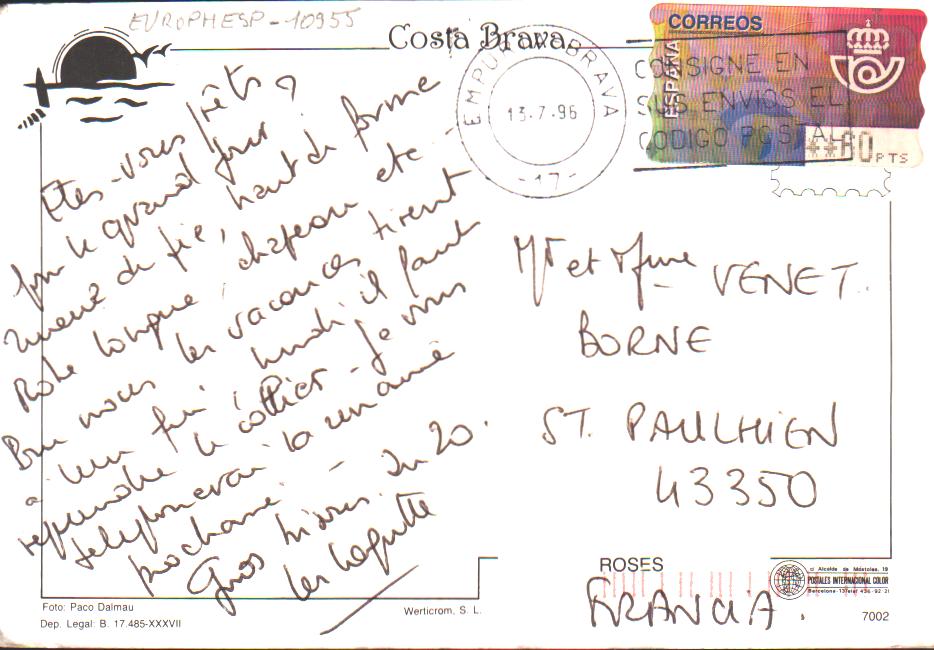 EUROPHESP-10955
Costa Brava
EMPURIABRAVA
13.7.96
-17-
CONSIGNE EN
SUS ENVIOS EL
CODIGO POSTAL
CORREOS
ESPAÑA
**60 PTS
Etes-vous prêts
pour le grand jour ?
nœud de pie, haut de forme
Robe longue, chapeau etc.
Bon nous les vacances tirent
à leur fin, lundi il faut
reprendre le collier - Je vous
telephonerai la semaine
prochaine - Du 20.
Gros bisous
les
Mr et Mme VENET.
BORNE
ST. PAULHIEN
43350
FRANCIA
ROSES
c/ Alcalde de Móstoles, 19
POSTALES INTERNACIONAL COLOR
Barcelona-13 Telef 436-92 21
Foto: Paco Dalmau
Dep. Legal: B. 17.485-XXXVII
Werticrom, S. L.
7002